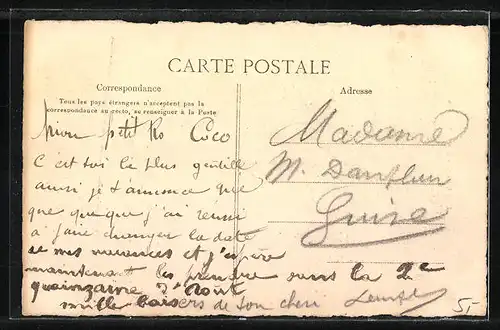 CARTE POSTALE
Correspondance
Tous les pays étrangers n'acceptent pas la
correspondance au recto, se renseigner à la Poste
Adresse
Mon petit Coco
C'est toi la plus gentille
aussi je t'annonce que
que j'ai reussi
à faire changer la date
de mes et j'espère
maintenant les prendre vers la 2e
quinzaine d'Août
mille baisers de ton cheri
Madame
M. Danflun
Guise
5,-